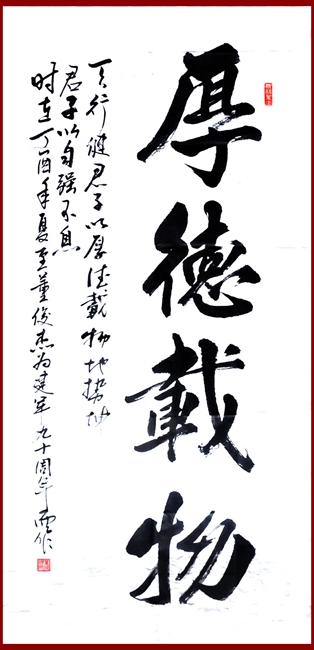 厚德載物
天行健君子以厚德載物地势坤
君子以自强不息
时在丁酉年夏至董俊杰为建军九十周年而作